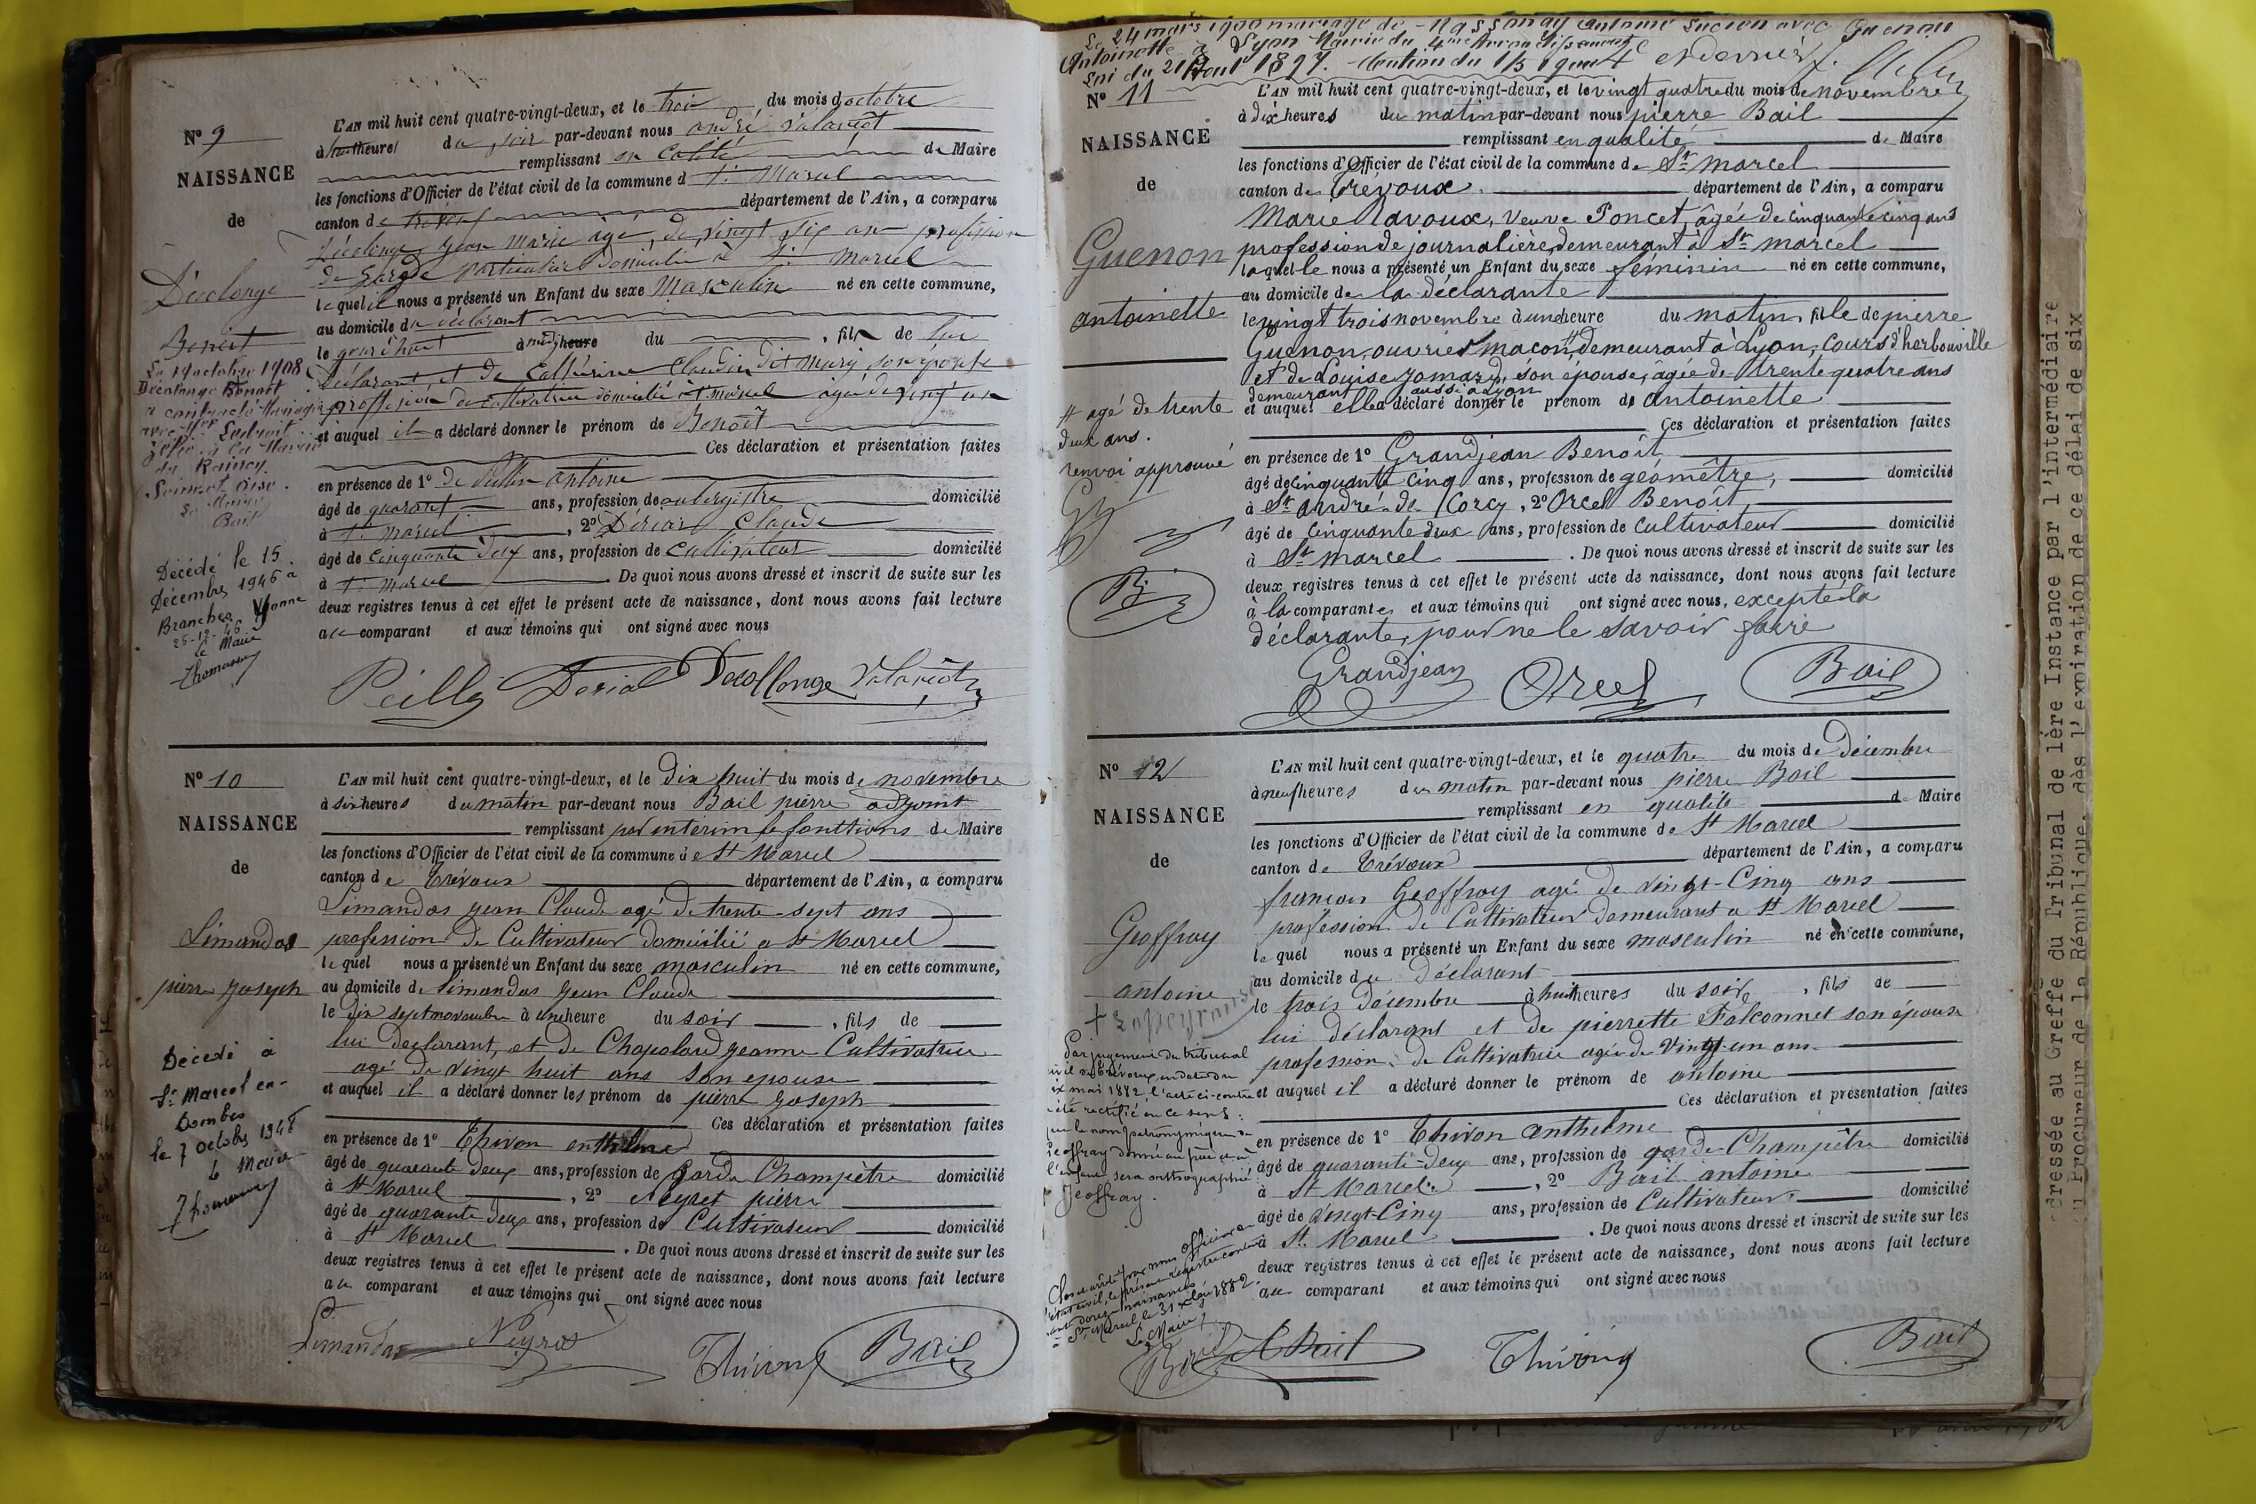 Nº 9
NAISSANCE
de
Décolonge
Benoit
Le 19 octobre 1908
Décolonge Benoit
a contracté Mariage
avec Melle Ludivit
à la Mairie
du Raincy
Seine et Oise.
Le Maire
Bail
Décédé le 15
Décembre 1946 à
Branches Yonne
25-12-46
Le Maire
Thomasson
L'AN mil huit cent quatre-vingt-deux, et le trois du mois d'octobre
à huit heures du soir par-devant nous andré Valançot
remplissant en calité de Maire
les fonctions d'Officier de l'état civil de la commune d St Marcel
canton de trévoux département de l'Ain, a comparu
Décolonge jean marie agé de vingt six ans profession
de garde particulier domicilié à St marcel
lequel il nous a présenté un Enfant du sexe Masculin né en cette commune,
au domicile du déclarant
le jour à midi heure du , fils de lui
déclarant et de Cathérine Claudin dit Mury son épouse
proffesion de cultivatrice domicilié à St marcel agée de vingt ans
et auquel il a déclaré donner le prénom de Benoît
Ces déclaration et présentation faites
en présence de 1º antoine
âgé de quarante ans, profession de aubergiste domicilié
à St marcel , 2º Dérias Claude
âgé de cinquante deux ans, profession de cultivateur domicilié
à St marcel . De quoi nous avons dressé et inscrit de suite sur les
deux registres tenus à cet effet le présent acte de naissance, dont nous avons fait lecture
au comparant et aux témoins qui ont signé avec nous
Peilly Decollonge Valançot
Nº 10
NAISSANCE
de
Limandas
pierre joseph
Décédé à
St Marcel en
Dombes
le 7 octobre 1948
le Maire
Thomasson
L'AN mil huit cent quatre-vingt-deux, et le dix huit du mois de novembre
à six heures du matin par-devant nous Bail pierre adjoint
remplissant par intérim les fonttions de Maire
les fonctions d'Officier de l'état civil de la commune de St Marcel
canton de Trévoux département de l'Ain, a comparu
Limandas jean Claude agé de trente-sept ans
profession de Cultivateur domicilié a St Marcel
lequel nous a présenté un Enfant du sexe masculin né en cette commune,
au domicile de Limandas jean Claude
le dix sept novembre à une heure du soir , fils de
lui declarant, et de Chapolard jeanne Cultivatrice
agé de vingt huit ans son epouse
et auquel il a déclaré donner les prénom de pierre joseph
Ces déclaration et présentation faites
en présence de 1º Thivon anthelme
âgé de quarante deux ans, profession de garde Champètre domicilié
à St Marcel , 2º Neyret pierre
âgé de quarante deux ans, profession de Cultivateur domicilié
à St Marcel . De quoi nous avons dressé et inscrit de suite sur les
deux registres tenus à cet effet le présent acte de naissance, dont nous avons fait lecture
au comparant et aux témoins qui ont signé avec nous
Limandas Neyret Thivon Bail
Le 24 mars 1900 mariage de Massonay antoine Lucien avec Guenon
Antoinette à Lyon Mairie du 4me Arrondissement
Loi du 21 Aout 1897.
Nº 11
NAISSANCE
de
Guenon
antoinette
# agé de trente
deux ans.
renvoi approuvé
L'AN mil huit cent quatre-vingt-deux, et le vingt quatre du mois de novembre
à dix heures du matin par-devant nous pierre Bail
remplissant en qualité de Maire
les fonctions d'Officier de l'état civil de la commune de St marcel
canton de Trévoux. département de l'Ain, a comparu
Marie Ravoux, veuve Poncet, âgée de cinquante cinq ans
profession de journalière, demeurant à St marcel
laquelle nous a présenté un Enfant du sexe féminin né en cette commune,
au domicile de la déclarante
le vingt trois novembre à une heure du matin, fille de pierre
Guenon, ouvrier maçon,# demeurant à Lyon, cours d'herbouville
et de Louise yomard, son épouse, agée de trente quatre ans
demeurant aussi à Lyon
et auquel elle a déclaré donner le prénom de antoinette
Ces déclaration et présentation faites
en présence de 1º Grandjean Benoît,
âgé de cinquante cinq ans, profession de géomètre, domicilié
à St andré-de-Corcy, 2º Orcel Benoît
âgé de cinquante deux ans, profession de cultivateur domicilié
à St marcel . De quoi nous avons dressé et inscrit de suite sur les
deux registres tenus à cet effet le présent acte de naissance, dont nous avons fait lecture
à la comparante et aux témoins qui ont signé avec nous, excepté la
déclarante, pour ne le savoir faire
Grandjean Orcel Bail
Nº 12
NAISSANCE
de
Geoffray
antoine
Par jugement du tribunal
civil de Trévoux en date du
mai 1882, l'acte ci-contre
a été rectifié en ce sens:
que le nom patronymique de
Geoffray donné au père et à
l'enfant sera orthographié
Jeoffray.
Clos et arrêté par nous officier de
l'état civil, le présent registre contenant
douze naissances
St Marcel le 31 Xbre 1882.
Le Maire
Bail
L'AN mil huit cent quatre-vingt-deux, et le quatre du mois de Décembre
à neuf heures du matin par-devant nous pierre Bail
remplissant en qualité de Maire
les fonctions d'Officier de l'état civil de la commune de St Marcel
canton de Trévoux département de l'Ain, a comparu
francois Geoffray agé de vingt-Cinq ans
profession de Cultivateur demeurant a St Marcel
lequel nous a présenté un Enfant du sexe masculin né en cette commune,
au domicile du déclarant
le trois décembre à huit heures du soir, fils de
lui déclarant et de pierrette Falconnet son épouse
profession de Cultivatrice agée de vingt-un ans
et auquel il a déclaré donner le prénom de antoine
Ces déclaration et présentation faites
en présence de 1º Thivon anthelme
âgé de quarante-deux ans, profession de garde Champêtre domicilié
à St Marcel , 2º Bail antoine
âgé de vingt-Cinq ans, profession de Cultivateur domicilié
à St Marcel . De quoi nous avons dressé et inscrit de suite sur les
deux registres tenus à cet effet le présent acte de naissance, dont nous avons fait lecture
au comparant et aux témoins qui ont signé avec nous
A Bail Thivon Bail
dressée au Greffe du Tribunal de 1ère Instance par l'intermédiaire
du Procureur de la République, dès l'expiration de ce délai de six